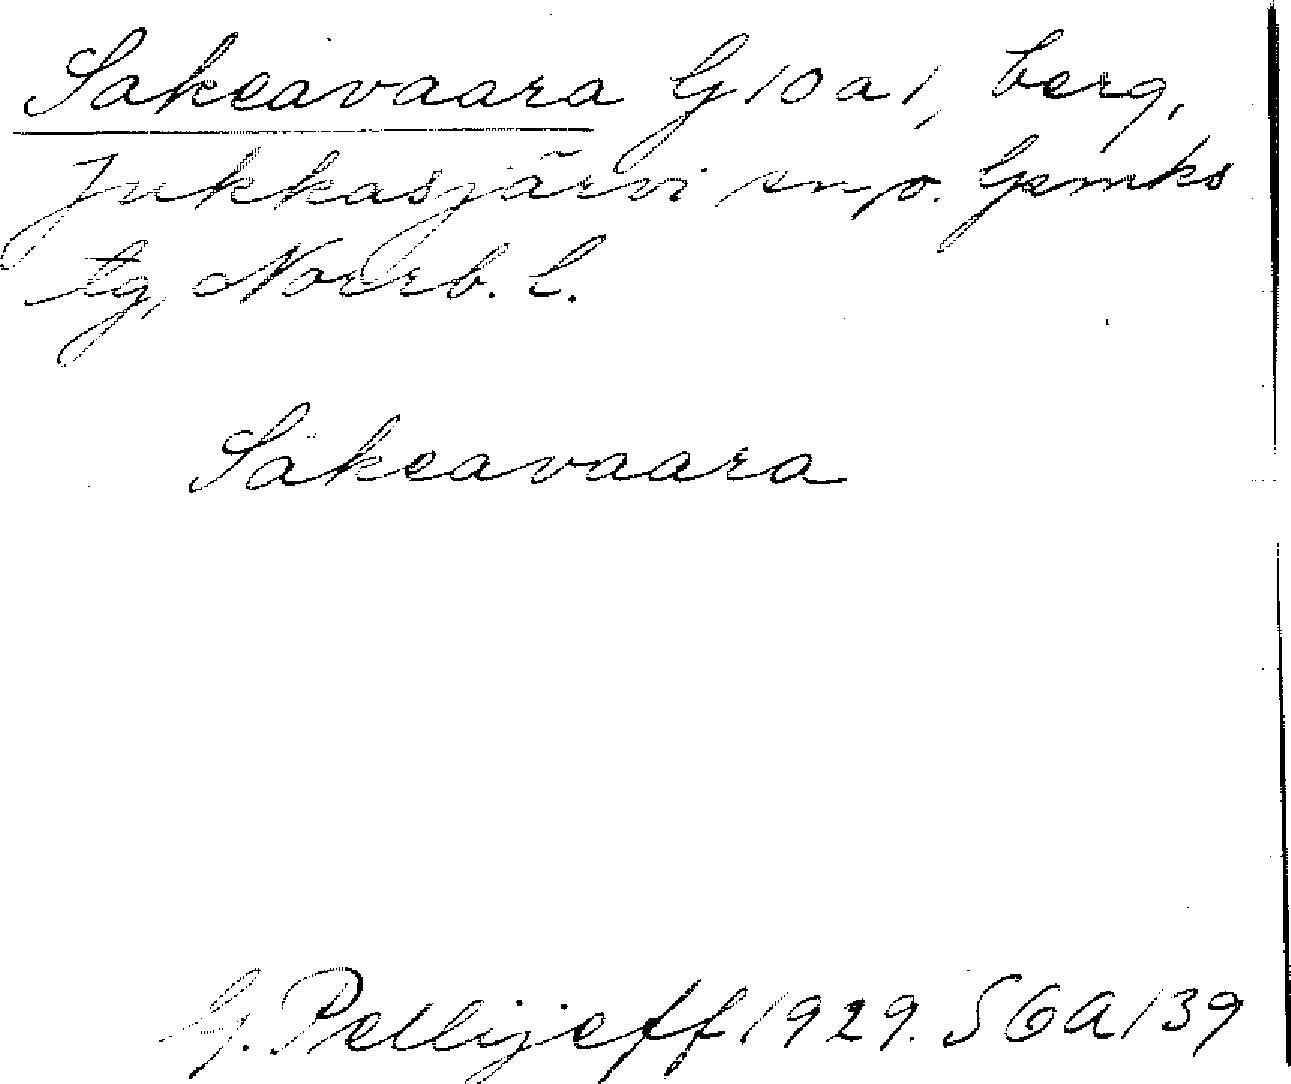 Sakeavaara G 10 a 1, berg,
Jukkasjärvi sn o. Gpmks
tg, Norrb. l.
Sakeavaara
G. Pellijeff 1929. SGA 139